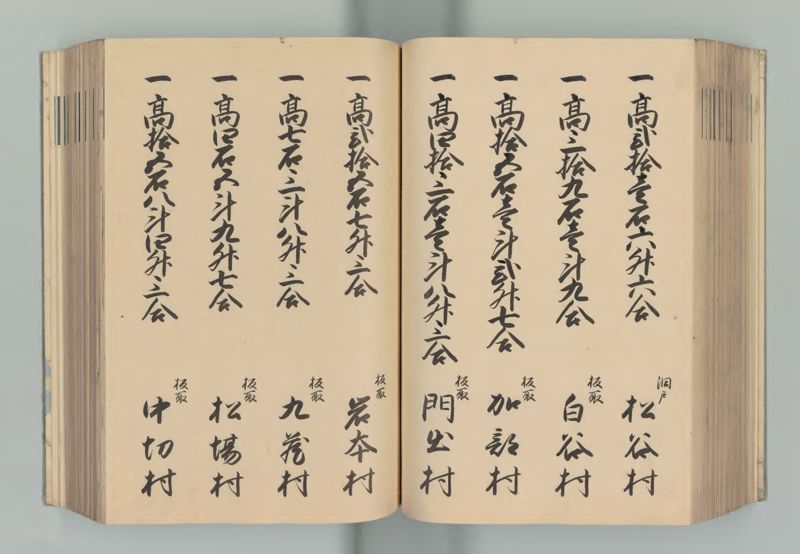 一 高弐拾壱石六升六合 洞戸 松谷村
一 高三拾九石壱斗九合 板取 白谷村
一 高拾五石壱斗弐升七合 板取 加部村
一 高四拾三石壱斗八升三合 板取 門出村
一 高弐拾五石七升三合 板取 岩本村
一 高七石三斗八升三合 板取 九蔵村
一 高四石五斗九升七合 板取 松場村
一 高拾五石八斗四升三合 板取 中切村